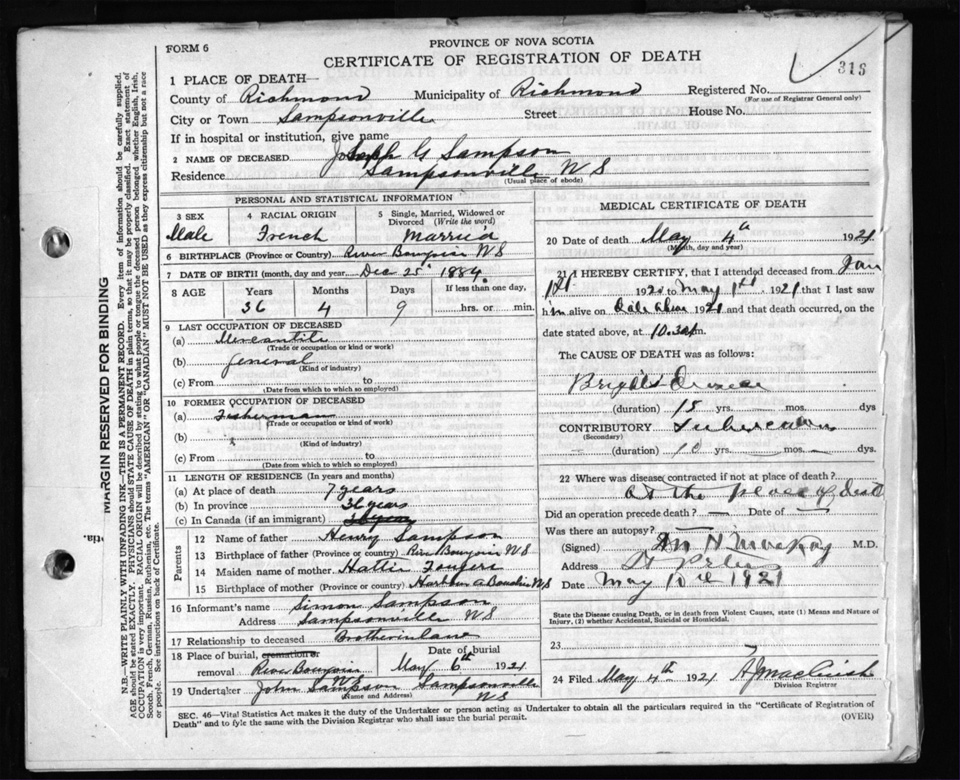 FORM 6
PROVINCE OF NOVA SCOTIA
CERTIFICATE OF REGISTRATION OF DEATH
316
1 PLACE OF DEATH—
County of Richmond Municipality of Richmond Registered No.
(For use of Registrar General only)
City or Town Sampsonville Street House No.
If in hospital or institution, give name
2 NAME OF DECEASED Joseph G Sampson
Residence Sampsonville N S
(Usual place of abode)
PERSONAL AND STATISTICAL INFORMATION
3 SEX 4 RACIAL ORIGIN 5 Single, Married, Widowed or Divorced (Write the word)
Male French Married
6 BIRTHPLACE (Province or Country) River Bourgeois N S
7 DATE OF BIRTH (month, day and year) Dec 25 1884
8 AGE Years Months Days If less than one day,
36 4 9 hrs. or min.
9 LAST OCCUPATION OF DECEASED
(a) Mercantile
(Trade or occupation or kind of work)
(b) General
(Kind of industry)
(c) From to
(Date from which to which so employed)
10 FORMER OCCUPATION OF DECEASED
(a) Fisherman
(Trade or occupation or kind of work)
(b)
(Kind of industry)
(c) From to
(Date from which to which so employed)
11 LENGTH OF RESIDENCE (In years and months)
(a) At place of death 7 years
(b) In province 36 years
(c) In Canada (if an immigrant)
Parents
12 Name of father Henry Sampson
13 Birthplace of father (Province or country) River Bourgeois N S
14 Maiden name of mother Hattie Fougere
15 Birthplace of mother (Province or country) Harbour a Bouche N S
16 Informant's name Simon Sampson
Address Sampsonville N S
17 Relationship to deceased Brother in law
18 Place of burial, cremation or removal Date of burial
River Bourgeois N S May 6th 1921
19 Undertaker John Sampson Sampsonville N S
(Name and Address)
MEDICAL CERTIFICATE OF DEATH
20 Date of death May 4th 1921
(Month, day and year)
21 I HEREBY CERTIFY, that I attended deceased from Jan
1st 1920 to May 1st 1921 that I last saw
him alive on date above 1921 and that death occurred, on the
date stated above, at 10.30 m.
The CAUSE OF DEATH was as follows:
Brights Disease
(duration) 15 yrs. mos. dys
CONTRIBUTORY Tuberculosis
(Secondary)
(duration) 10 yrs. mos. dys.
22 Where was disease contracted if not at place of death?
At the place of death
Did an operation precede death? — Date of —
Was there an autopsy? —
(Signed) M.D.
Address St Peters
Date May 10th 1921
State the Disease causing Death, or in death from Violent Causes, state (1) Means and Nature of Injury, (2) whether Accidental, Suicidal or Homicidal.
23
24 Filed May 4th 1921
Division Registrar
SEC. 46—Vital Statistics Act makes it the duty of the Undertaker or person acting as Undertaker to obtain all the particulars required in the "Certificate of Registration of
Death" and to fyle the same with the Division Registrar who shall issue the burial permit.
(OVER)
MARGIN RESERVED FOR BINDING
N.B.—WRITE PLAINLY WITH UNFADING INK—THIS IS A PERMANENT RECORD. Every item of information should be carefully supplied.
AGE should be stated EXACTLY. PHYSICIANS should STATE CAUSE OF DEATH in plain terms, so that it may be properly classified. Exact statement of
OCCUPATION is very important. RACIAL ORIGIN will be described by stating to what people or tongue the deceased person belonged whether English, Irish,
Scotch, French, German, Russian, Ruthenian, etc. The terms "AMERICAN" OR "CANADIAN" MUST NOT BE USED as they express citizenship but not a race
or people. See instructions on back of Certificate.